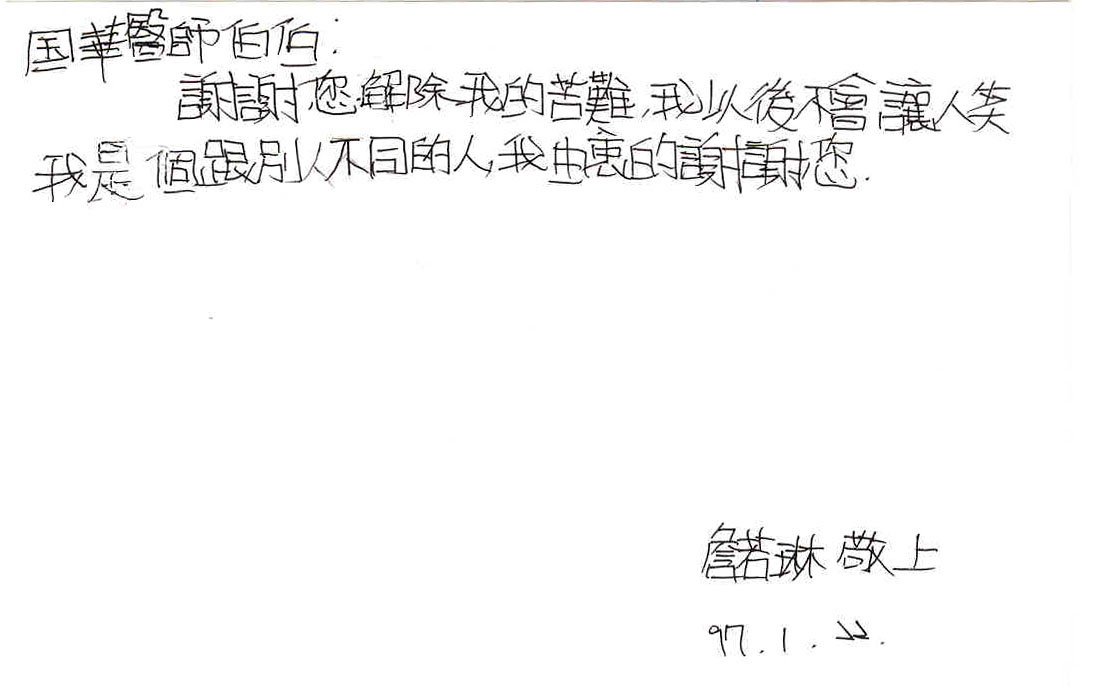 国華醫師伯伯:
謝謝您解除我的苦難,我以後不會讓人笑
我是個跟別人不同的人,我由衷的謝謝您.
詹若琳 敬上
97.1.22.